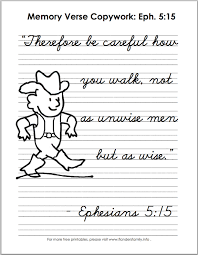 Memory Verse Copywork: Eph. 5:15
"Therefore be careful how
you walk, not
as unwise men
but as wise."
- Ephesians 5:15
For more free printables, please visit www.flandersfamily.info.